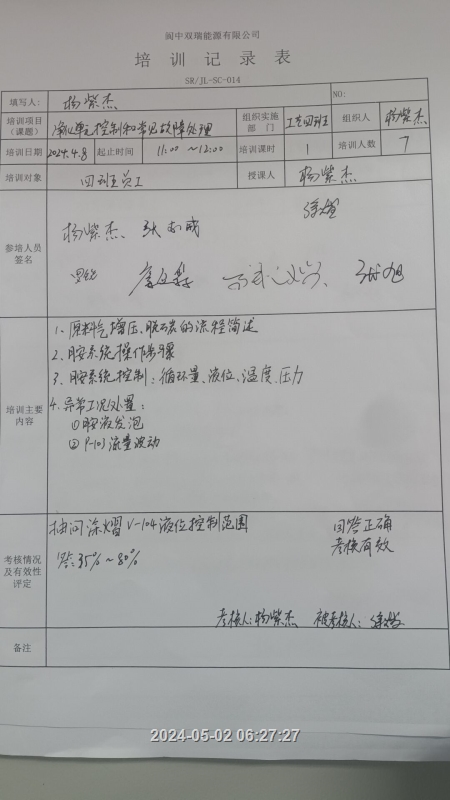 阆中双瑞能源有限公司
培训记录表
SR/JL-SC-014
填写人： 杨紫杰 NO:
培训项目（课题） 净化单元控制和常见故障处理 组织实施部门 工艺四班 组织人 杨紫杰
培训日期 2024.4.8 起止时间 11:00 ~12:00 培训课时 1 培训人数 7
培训对象 四班员工 授课人 杨紫杰
参培人员签名
涂熠
杨紫杰、张
培训主要内容
1、原料气增压、脱碳的流程简述
2、胺系统操作步骤
3、胺系统控制：循环量、液位、温度、压力
4、异常工况处置：
①胺液发泡
②P-103流量波动
考核情况及有效性评定
抽问涂熠V-104液位控制范围 回答正确
答：35%~80% 考核有效
考核人：杨紫杰 被考核人：涂熠
备注
2024-05-02 06:27:27